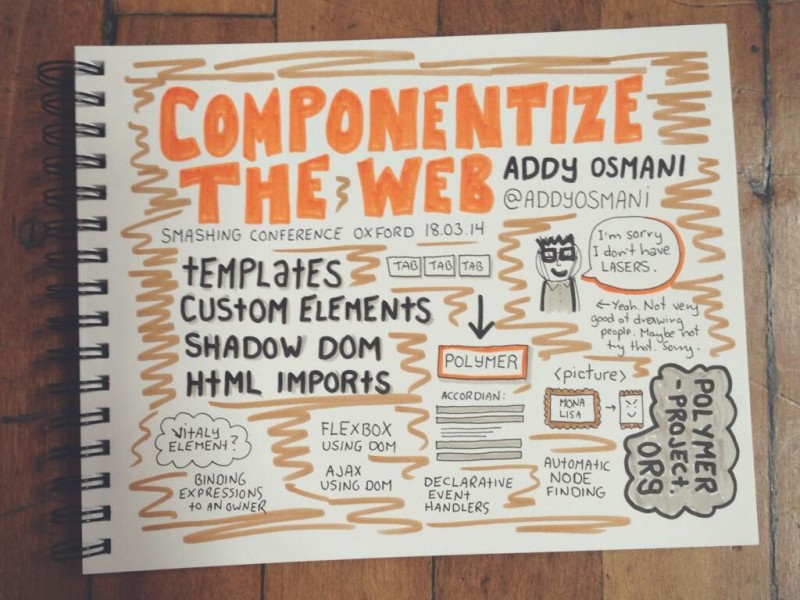 COMPONENTIZE
THE WEB
ADDY OSMANI
@ADDYOSMANI
SMASHING CONFERENCE OXFORD 18.03.14
TEMPLATES
CUSTOM ELEMENTS
SHADOW DOM
HTML IMPORTS
TAB TAB TAB
POLYMER
ACCORDIAN:
I'm sorry
I don't have
LASERS.
←Yeah. Not very
good at drawing
people. Maybe not
try that. Sorry.
<picture>
MONA
LISA
→
POLYMER
-PROJECT.
ORG
VITALY
ELEMENT?
BINDING
EXPRESSIONS
TO AN OWNER
FLEXBOX
USING DOM
AJAX
USING DOM
DECLARATIVE
EVENT
HANDLERS
AUTOMATIC
NODE
FINDING